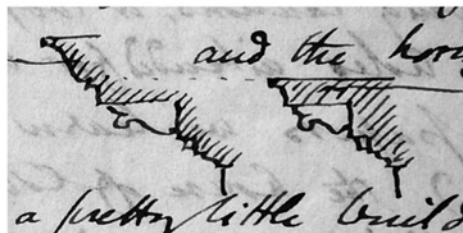 and the hor
a pretty little build